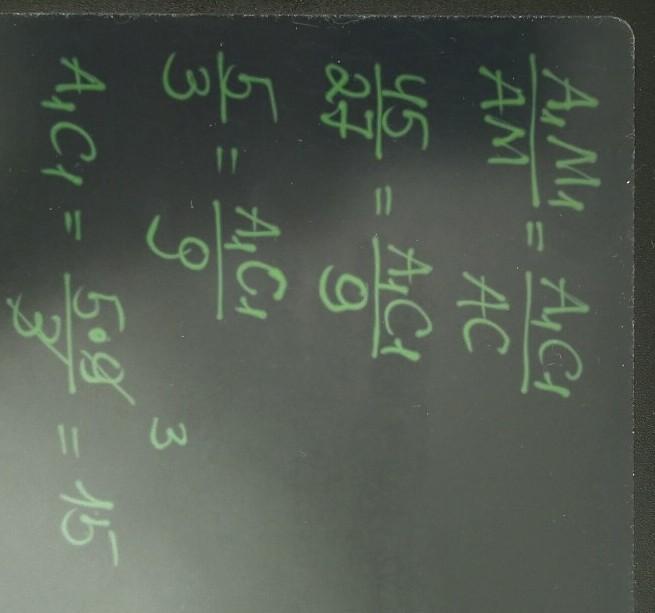 A₁M₁/AM = A₁C₁/AC
45/27 = A₁C₁/9
5/3 = A₁C₁/9
3
A₁C₁ = 5·9/3 = 15